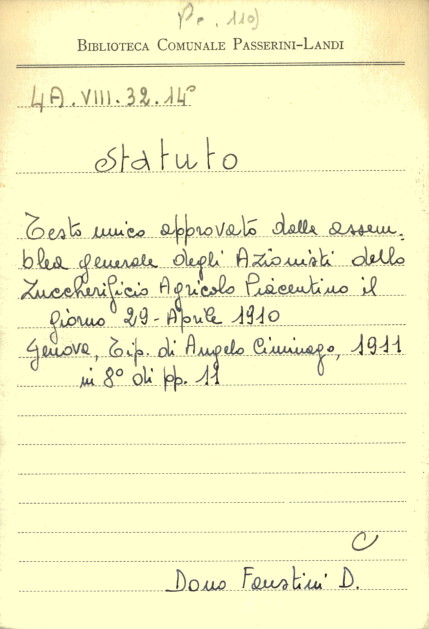 Pr. 110)
BIBLIOTECA COMUNALE PASSERINI-LANDI
4A.VIII.32.14°
Statuto
Testo unico approvato dalla assem-
blea generale degli Azionisti dello
Zuccherificio Agricolo Piacentino il
giorno 29-Aprile 1910
Genova, Tip. di Angelo Ciminago, 1911
in 8° di pp. 11
C
Dono Faustini D.